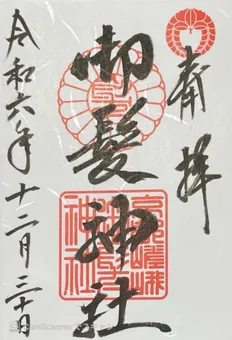 奉拝
御髪神社
京都嵯峨
神社
令和六年十二月三十日
CamScanner